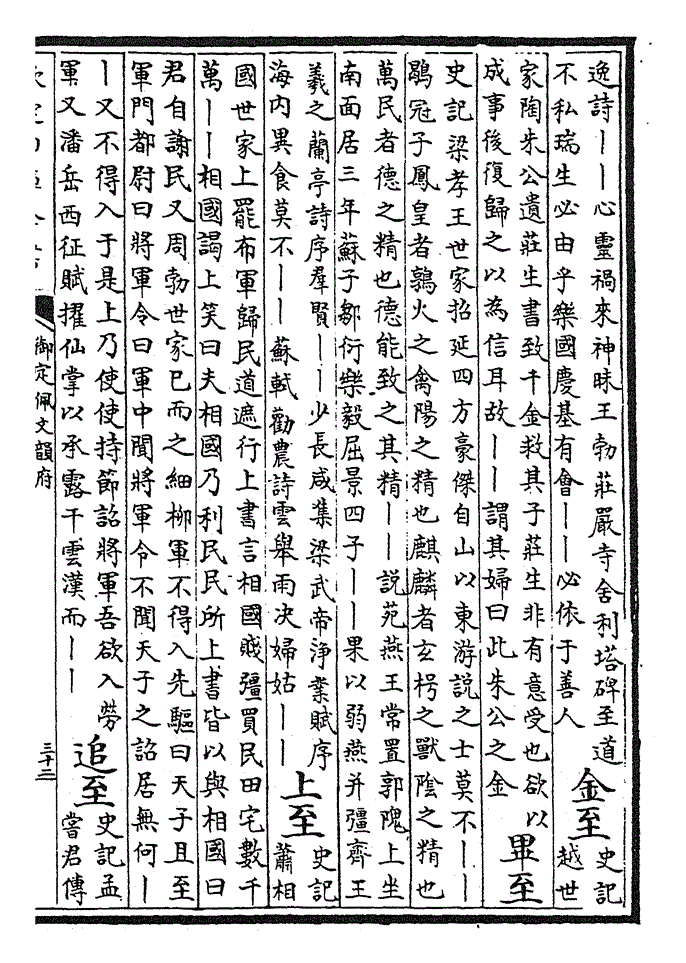 逸詩丨丨心靈禍來神昧王勃莊嚴寺舍利塔碑至道
不私瑞生必由乎樂國慶基有會丨丨必依于善人
金至
史記
越世
家陶朱公遺莊生書致千金救其子莊生非有意受也欲以
成事後復歸之以為信耳故丨丨謂其婦曰此朱公之金
畢至
史記梁孝王世家招延四方豪傑自山以東游說之士莫不丨丨
鶡冠子鳳皇者鶉火之禽陽之精也麒麟者玄枵之獸陰之精也
萬民者德之精也德能致之其精丨丨說苑燕王常置郭隗上坐
南面居三年蘇子鄒衍樂毅屈景四子丨丨果以弱燕并彊齊王
羲之蘭亭詩序羣賢丨丨少長咸集梁武帝淨業賦序
海内異食莫不丨丨蘇軾勸農詩雲舉雨决婦姑丨丨
上至
史記
蕭相
國世家上罷布軍歸民道遮行上書言相國賤彊買民田宅數千
萬丨丨相國謁上笑曰夫相國乃利民民所上書皆以與相國曰
君自謝民又周勃世家已而之細柳軍不得入先驅曰天子且至
軍門都尉曰將軍令曰軍中聞將軍令不聞天子之詔居無何丨
丨又不得入于是上乃使使持節詔將軍吾欲入勞
軍又潘岳西征賦擢仙掌以承露干雲漢而丨丨
追至
史記孟
嘗君傳
御定佩文韻府
三十二